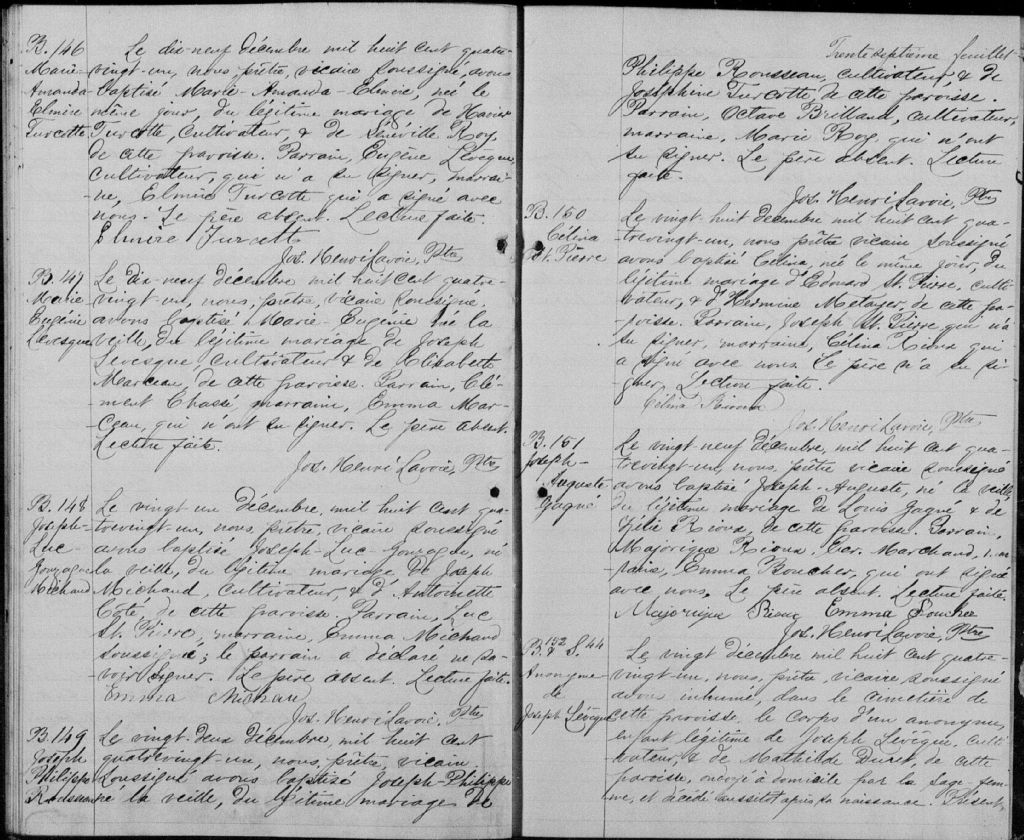 B. 146
Marie-
Amanda-
Elmire
Turcotte
Le dix-neuf décembre mil huit cent quatre-
vingt-un, nous, prêtre, vicaire soussigné, avons
baptisé Marie-Amanda-Elmire, née le
même jour, du légitime mariage de Xavier
Turcotte, Cultivateur, & de Séneville Roy,
de cette paroisse. Parrain, Eugène Lévèque,
Cultivateur, qui n'a su signer, marrai-
ne, Elmire Turcotte qui a signé avec
nous. Le père absent. Lecture faite.
Elmire Turcott
Jos. Henri Lavoie, Ptre
B. 147
Marie
Eugénie
Levesque
Le dix-neuf décembre mil huit cent quatre-
vingt-un, nous, prêtre, vicaire soussigné,
avons baptisé Marie-Eugénie née la
veille, du légitime mariage de Joseph
Levesque Cultivateur & de Elisabeth
Marceau, de cette paroisse. Parrain, Clé-
ment Chassé marraine, Emma Mar-
ceau, qui n'ont su signer. Le père absent.
Lecture faite.
Jos. Henri Lavoie, Ptre
B. 148
Joseph-
Luc-
Gonzague
Michaud
Le vingt un Décembre, mil huit cent qua-
trevingt-un, nous, prêtre, vicaire soussigné
avons baptisé Joseph-Luc-Gonzague, né
la veille, du légitime mariage de Joseph
Michaud, Cultivateur, & d'Antoinette
Côté, de cette paroisse. Parrain, Luc
St. Pierre, marraine, Emma Michaud
soussignée; le parrain a déclaré ne sa-
voir signer. Le père absent. Lecture faite.
Emma Michau
Jos. Henri Lavoie, Ptre
B. 149
Joseph
Philippe
Rousseau
Le vingt-deux décembre, mil huit cent
quatrevingt-un, nous, prêtre, vicaire
soussigné avons baptisé Joseph-Philippe
né la veille, du légitime mariage de
Trente septième feuillet
Philippe Rousseau, cultivateur, & de
Joséphine Turcotte de cette paroisse.
Parrain, Octave Brilland, cultivateur,
marraine, Marie Roy qui n'ont
su signer. Le père absent. Lecture
faite.
Jos. Henri Lavoie, Ptre
B. 150
Célina
St. Pierre
Le vingt-huit décembre mil huit cent qua-
trevingt-un, nous prêtre vicaire soussigné
avons baptisé Célina, née le même jour, du
légitime mariage d'Edouard St. Pierre, culti-
vateur, & d'Hermine Metayer, de cette pa-
roisse. Parrain, Joseph St. Pierre qui n'a
su signer, marraine, Célina Rioux qui
a signé avec nous. Le père n'a su si-
gner. Lecture faite.
Célina Rioux
Jos. Henri Lavoie, Ptre
B. 151
Joseph-
Auguste
Gagné
Le vingt-neuf décembre, mil huit cent qua-
trevingt-un, nous, prêtre vicaire soussigné
avons baptisé Joseph-Auguste, né la veille
du légitime mariage de Louis Gagné & de
Zélie Rioux, de cette paroisse. Parrain,
Majorique Rioux, Ecr. Marchand,
Emma Boucher, qui ont signé
avec nous. Le père absent. Lecture faite.
Majorique Rioux Emma Boucher
Jos. Henri Lavoie, Ptre
B. 152 & S. 44
Anonyme
de
Joseph Lévèque
Le vingt décembre mil huit cent quatre-
vingt-un, nous, prêtre vicaire soussigné
avons inhumé, dans le cimetière de
cette paroisse, le corps d'un anonyme,
enfant légitime de Joseph Lévèque, culti-
vateur, & de Mathilde Duret, de cette
paroisse, ondoyé à domicile par la sage-fem-
me, et décédé aussitôt après sa naissance. Présent,